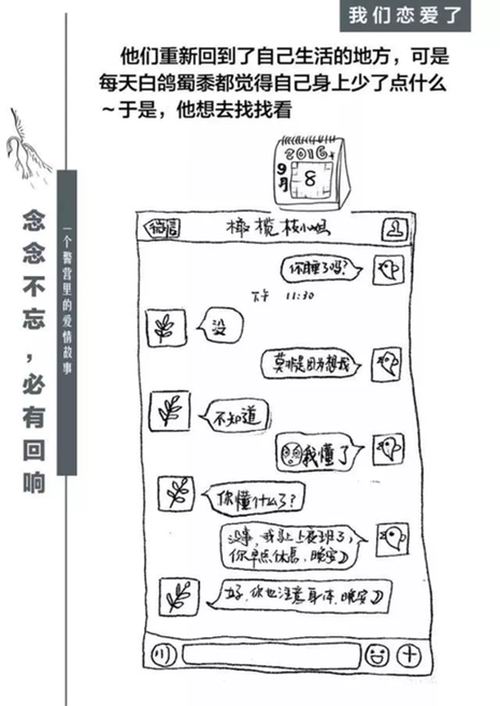 我们恋爱了
他们重新回到了自己生活的地方，可是
每天白鸽蜀黍都觉得自己身上少了点什么
～于是，他想去找找看
念念不忘，必有回响
一个警营里的爱情故事
2016
9月
8
微信
橄榄枝小姐
你睡了吗？
下午 11:30
没
莫非是因为想我
不知道
我懂了
你懂什么了？
没事，我马上夜班了，
你早点休息，晚安
好，你也注意身体，晚安